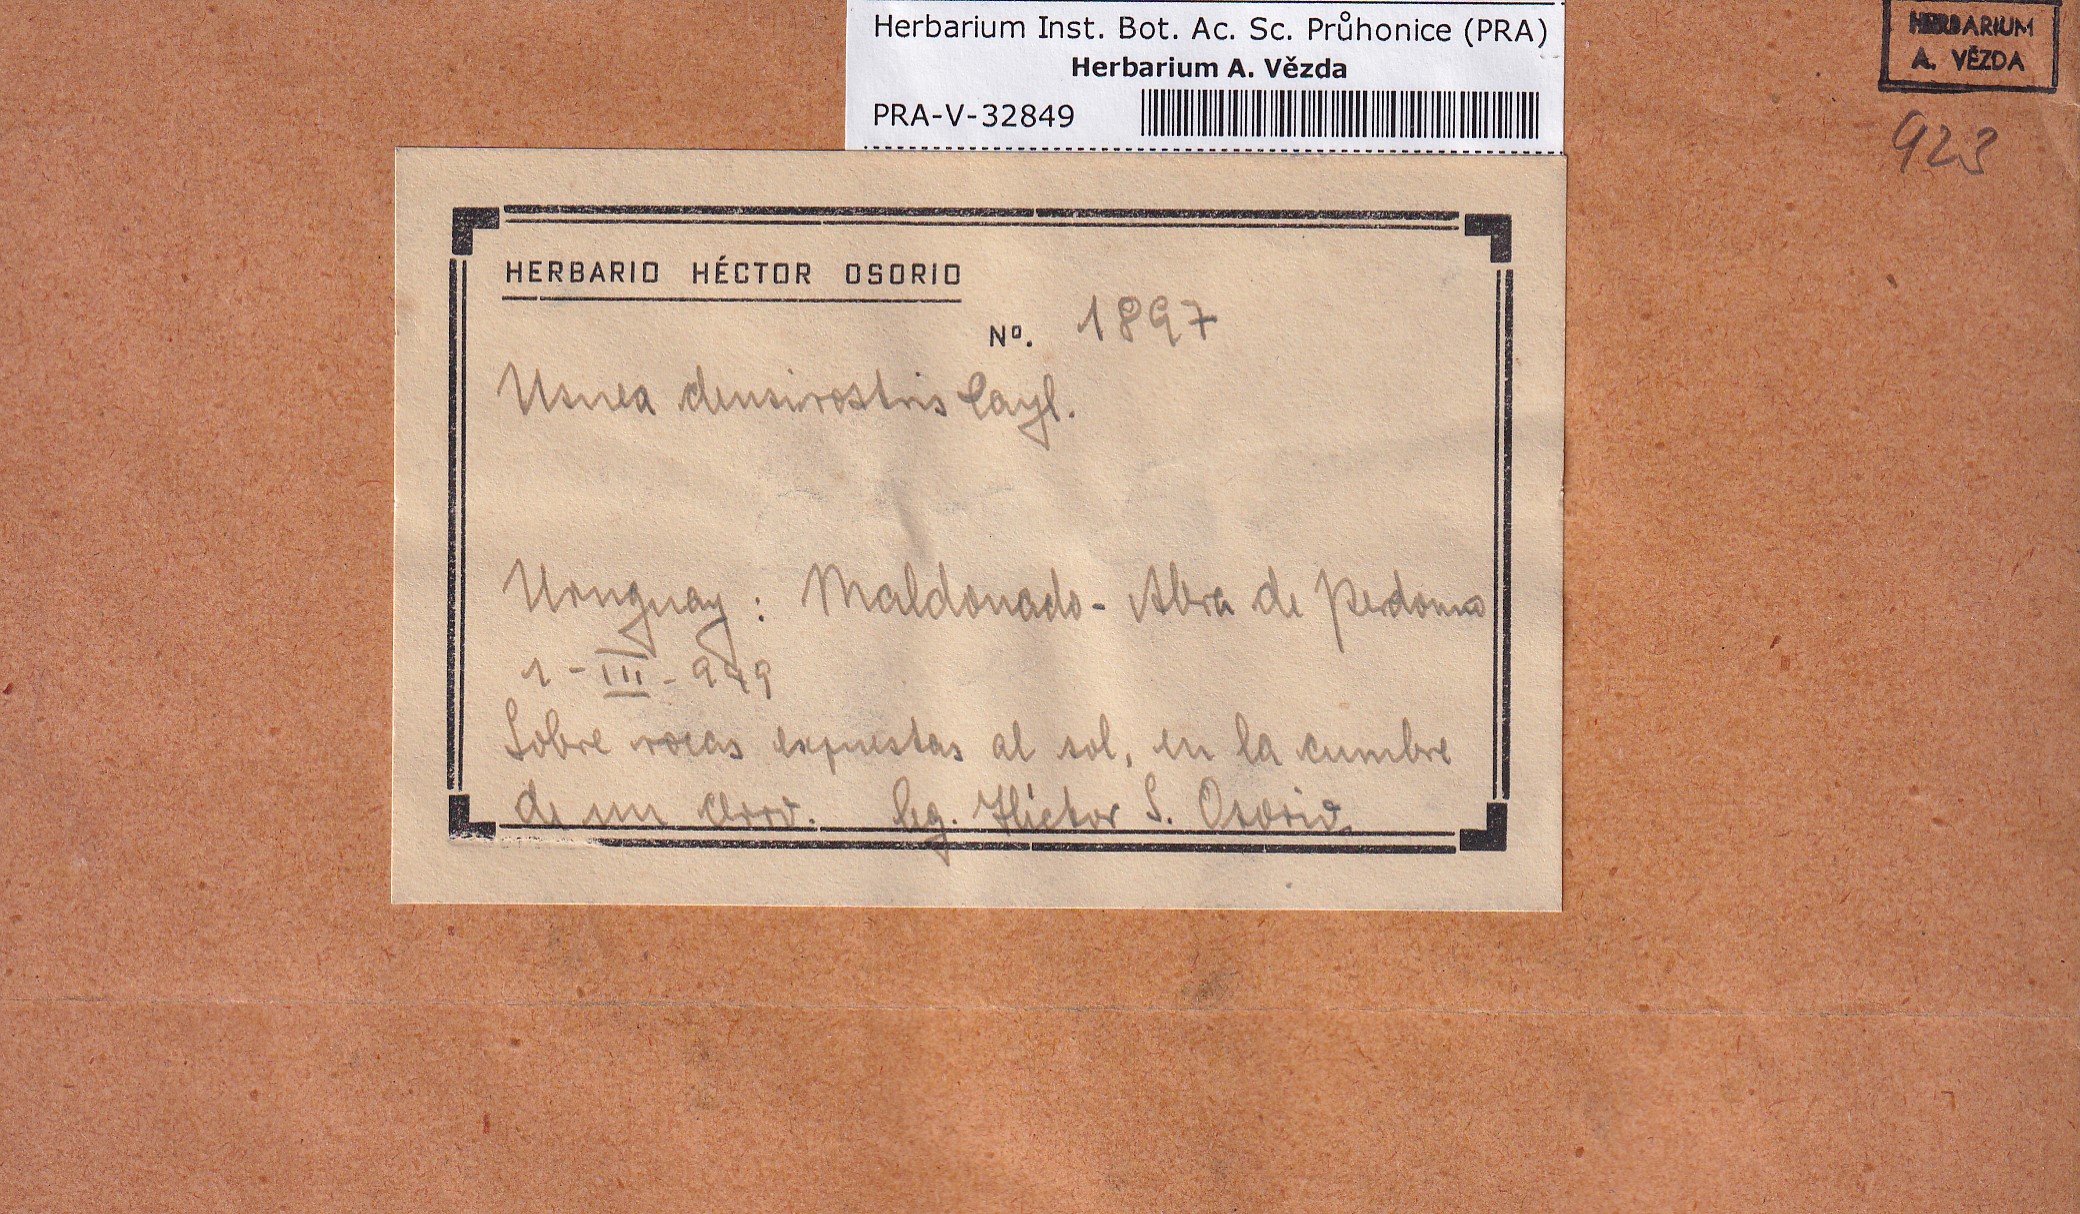 Herbarium Inst. Bot. Ac. Sc. Průhonice (PRA)
Herbarium A. Vězda
PRA-V-32849
HERBARIUM
A. VĚZDA
923
HERBARIO HÉCTOR OSORIO
Nº. 1897
Usnea densirostris Tayl.
Uruguay: Maldonado - Abra de Perdomo
1-III-949
Sobre rocas expuestas al sol, en la cumbre
de un cerro. leg. Héctor S. Osorio.